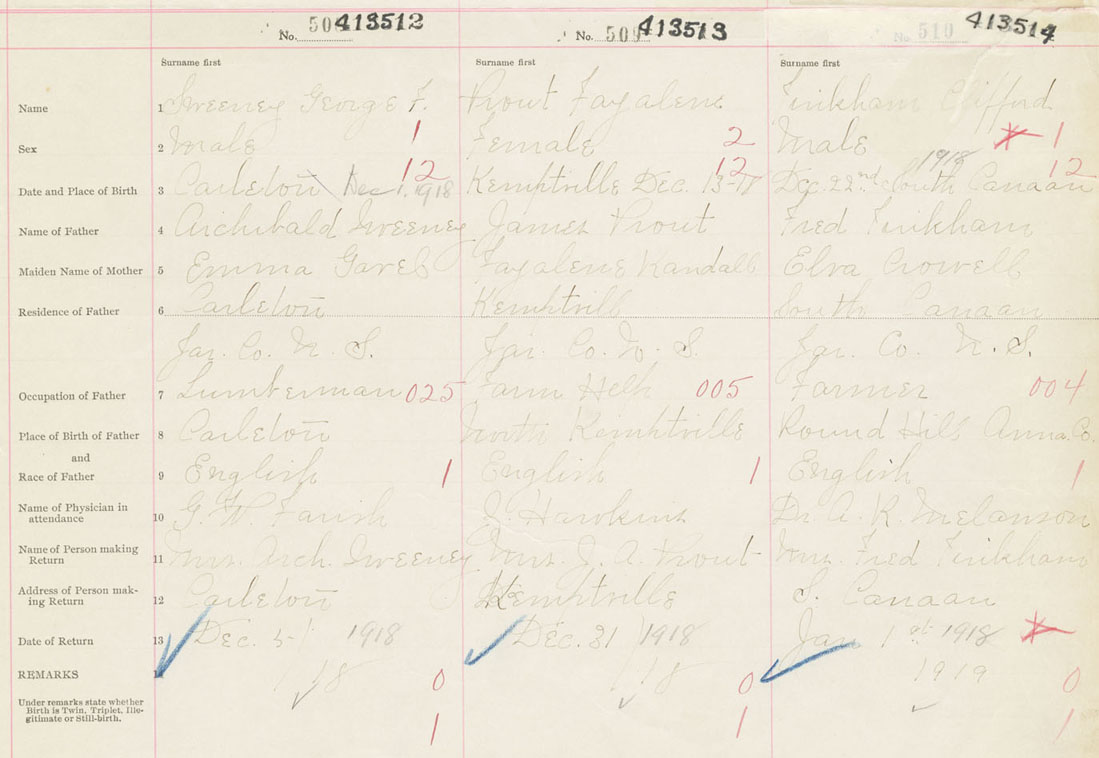 No. 50 413512 No. 509 413513 No. 510 413514
Surname first Surname first Surname first
Name 1 Sweeney George F. Prout Fayalene Kirkham Clifford
Sex 2 Male 1 Female 2 Male 1
1918
Date and Place of Birth 3 Carleton Dec 1. 1918 12 Kemptville Dec. 13-18 12 Dec. 22nd South Canaan 12
Name of Father 4 Archibald Sweeney James Prout Fred Kirkham
Maiden Name of Mother 5 Emma Gavel Fayalene Randall Elva Crowell
Residence of Father 6 Carleton Kemptvill South Canaan
Yar. Co. N. S. Yar. Co. N. S. Yar. Co. N. S.
Occupation of Father 7 Lumberman 025 Farm Help 005 Farmer 004
Place of Birth of Father 8 Carleton North Kemptville Round Hill Anna. Co.
and
Race of Father 9 English 1 English 1 English 1
Name of Physician in
attendance 10 G. W. Farish J. Hawkins Dr. A. R. Melanson
Name of Person making
Return 11 Mrs. Arch. Sweeney Mrs. J. A. Prout Mrs. Fred Kirkham
Address of Person mak-
ing Return 12 Carleton Kemptville S. Canaan
Date of Return 13 Dec. 5 1918 Dec. 31 1918 Jan 1918
REMARKS 18 0 18 0 1919 0
Under remarks state whether
Birth is Twin, Triplet, Ille-
gitimate or Still-birth. 1 1 1